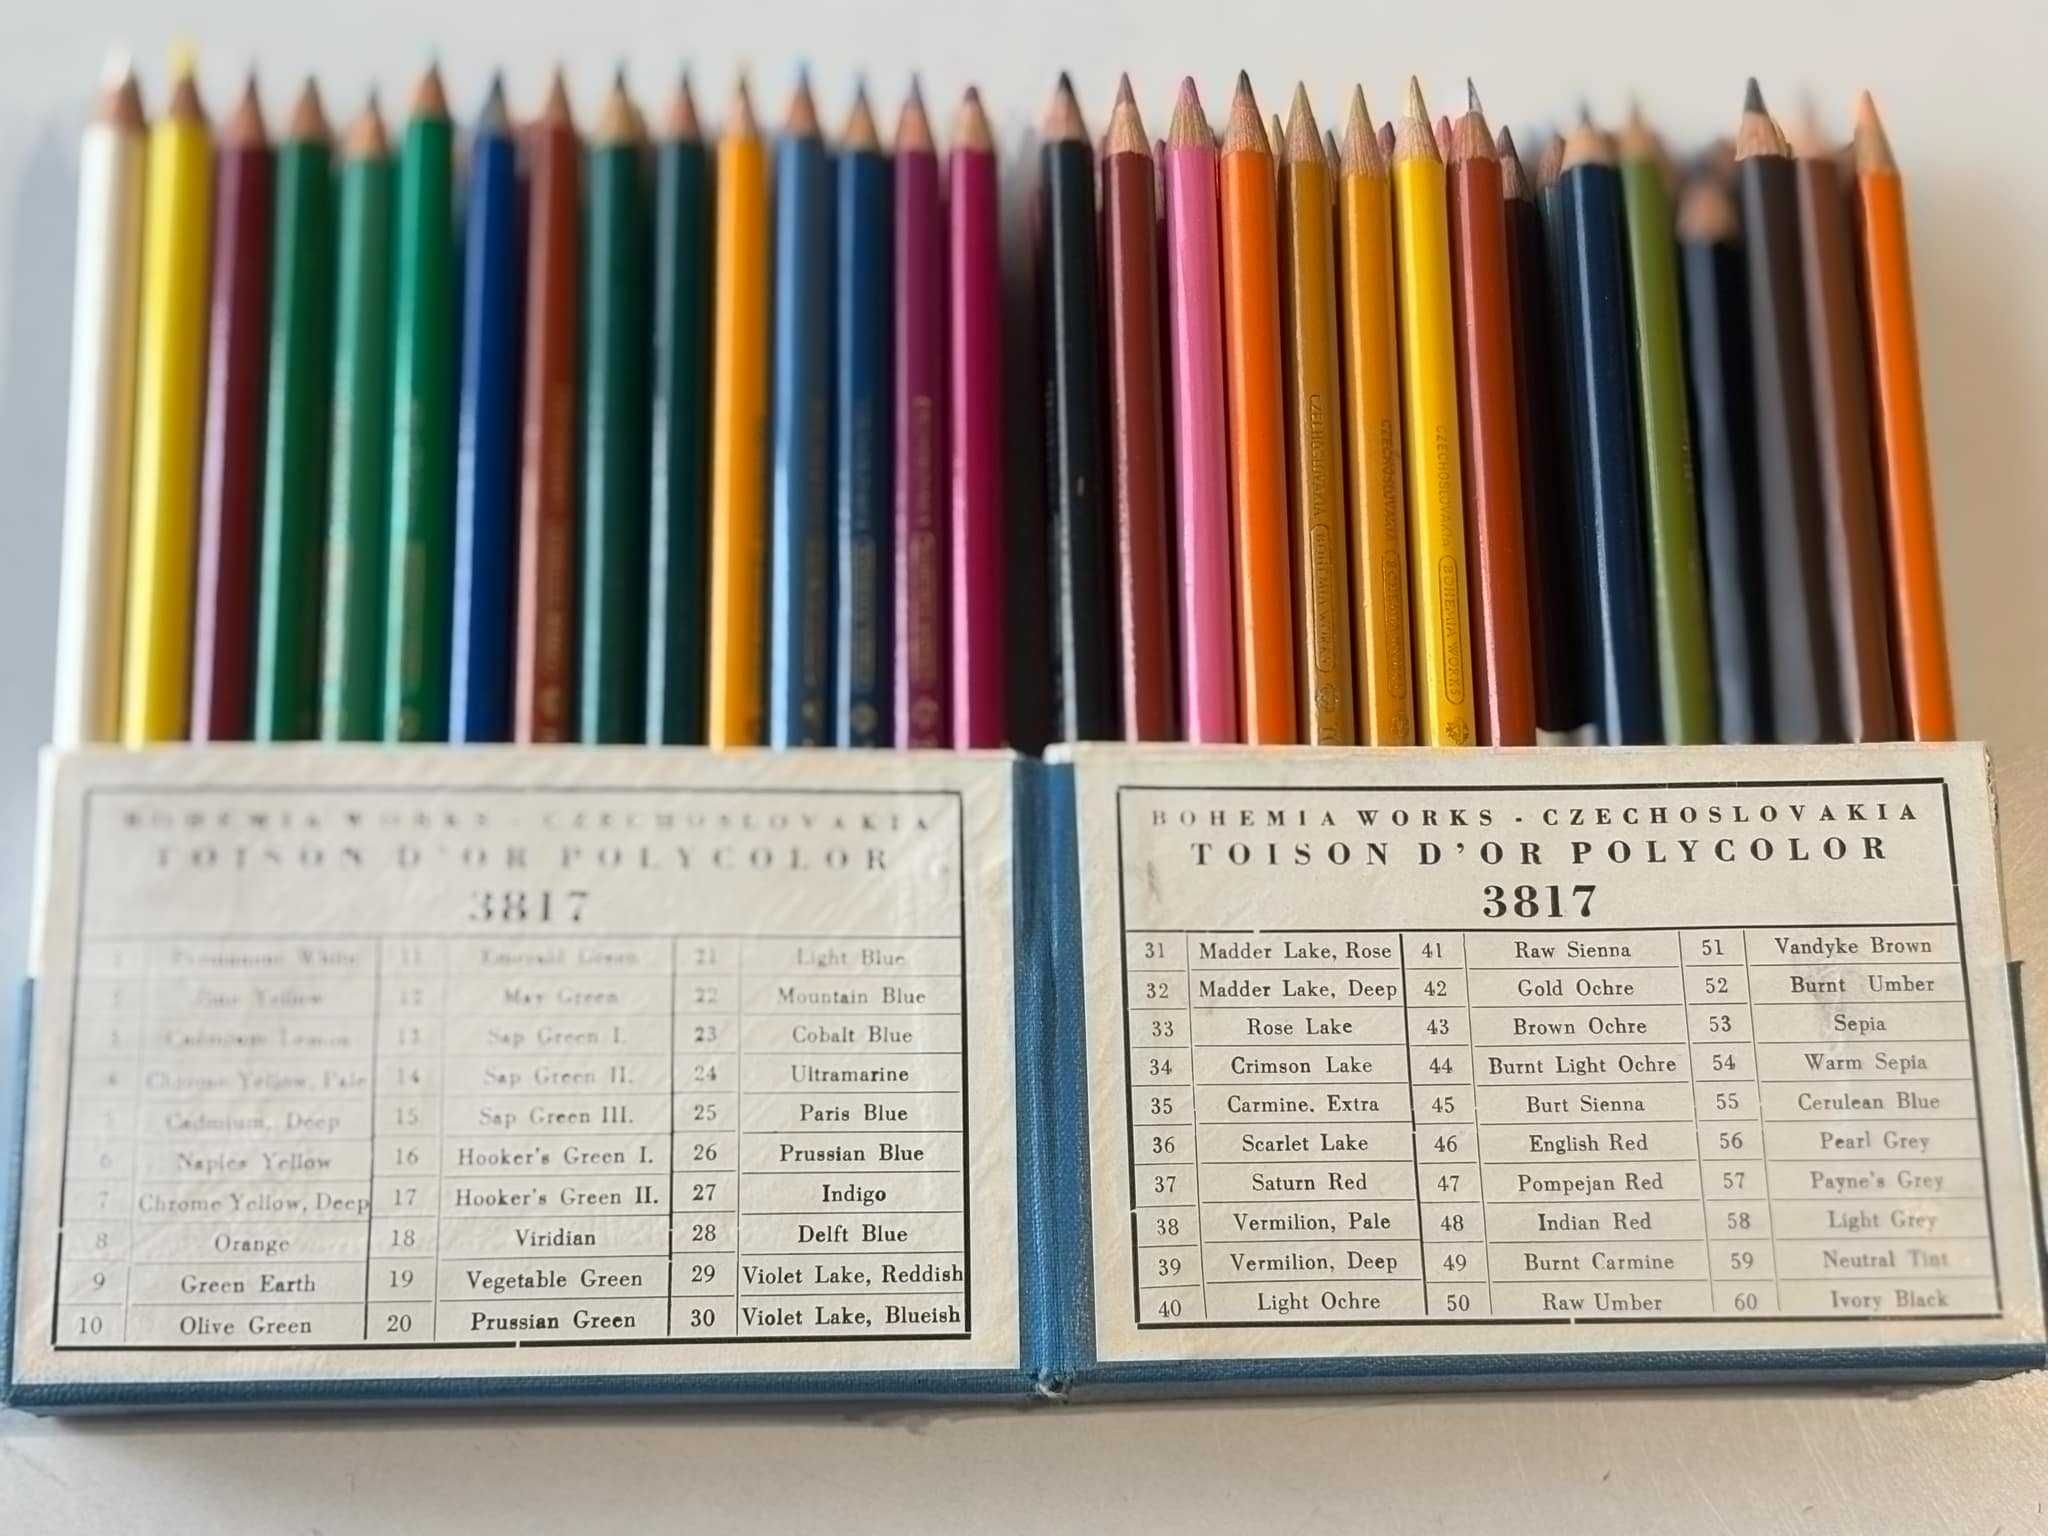 CZECHOSLOVAKIA BOHEMIA WORKS
CZECHOSLOVAKIA BOHEMIA WORKS
CZECHOSLOVAKIA BOHEMIA WORKS
BOHEMIA WORKS - CZECHOSLOVAKIA
TOISON D'OR POLYCOLOR
3817
1 Permanent White 11 Emerald Green 21 Light Blue
2 Zinc Yellow 12 May Green 22 Mountain Blue
3 Cadmium Lemon 13 Sap Green I. 23 Cobalt Blue
4 Chrome Yellow, Pale 14 Sap Green II. 24 Ultramarine
5 Cadmium, Deep 15 Sap Green III. 25 Paris Blue
6 Naples Yellow 16 Hooker's Green I. 26 Prussian Blue
7 Chrome Yellow, Deep 17 Hooker's Green II. 27 Indigo
8 Orange 18 Viridian 28 Delft Blue
9 Green Earth 19 Vegetable Green 29 Violet Lake, Reddish
10 Olive Green 20 Prussian Green 30 Violet Lake, Blueish
BOHEMIA WORKS - CZECHOSLOVAKIA
TOISON D'OR POLYCOLOR
3817
31 Madder Lake, Rose 41 Raw Sienna 51 Vandyke Brown
32 Madder Lake, Deep 42 Gold Ochre 52 Burnt Umber
33 Rose Lake 43 Brown Ochre 53 Sepia
34 Crimson Lake 44 Burnt Light Ochre 54 Warm Sepia
35 Carmine. Extra 45 Burt Sienna 55 Cerulean Blue
36 Scarlet Lake 46 English Red 56 Pearl Grey
37 Saturn Red 47 Pompejan Red 57 Payne's Grey
38 Vermilion, Pale 48 Indian Red 58 Light Grey
39 Vermilion, Deep 49 Burnt Carmine 59 Neutral Tint
40 Light Ochre 50 Raw Umber 60 Ivory Black